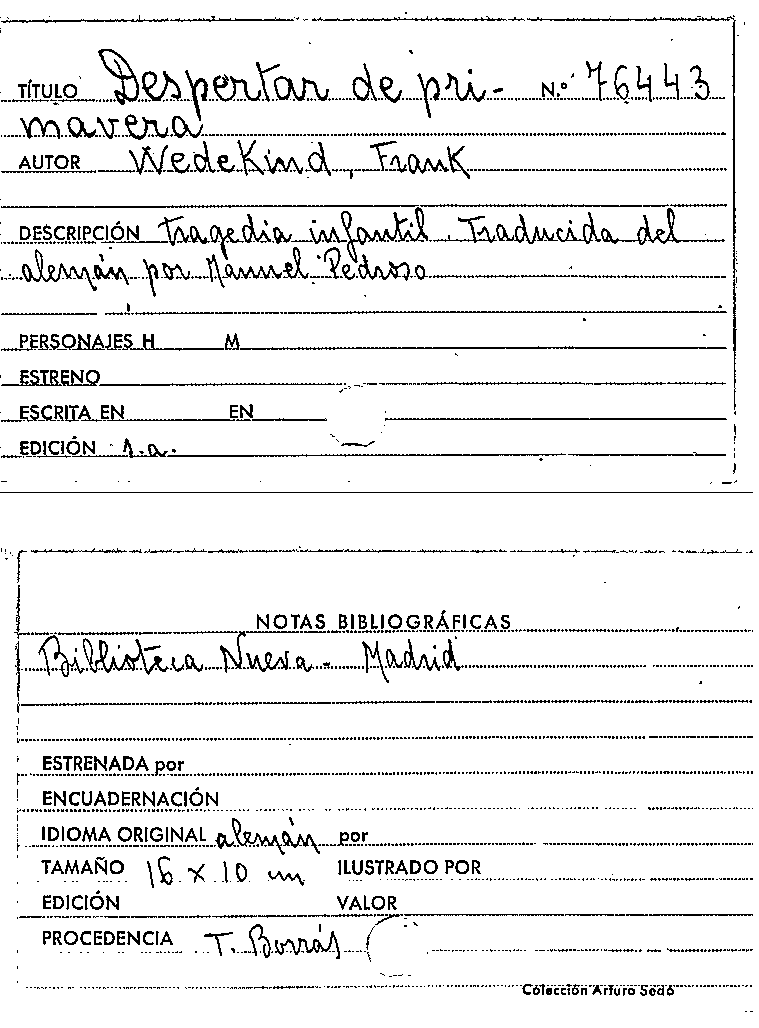 TÍTULO Despertar de pri- N.º 76443
mavera
AUTOR Wedekind, Frank
DESCRIPCIÓN tragedia infantil. Traducida del
alemán por Manuel Pedroso
PERSONAJES H M
ESTRENO
ESCRITA EN EN
EDICIÓN s.a.
NOTAS BIBLIOGRÁFICAS
Biblioteca Nueva - Madrid
ESTRENADA por
ENCUADERNACIÓN
IDIOMA ORIGINAL alemán por
TAMAÑO 16 x 10 cm ILUSTRADO POR
EDICIÓN VALOR
PROCEDENCIA T. Borrás
Colección Arturo Sedó